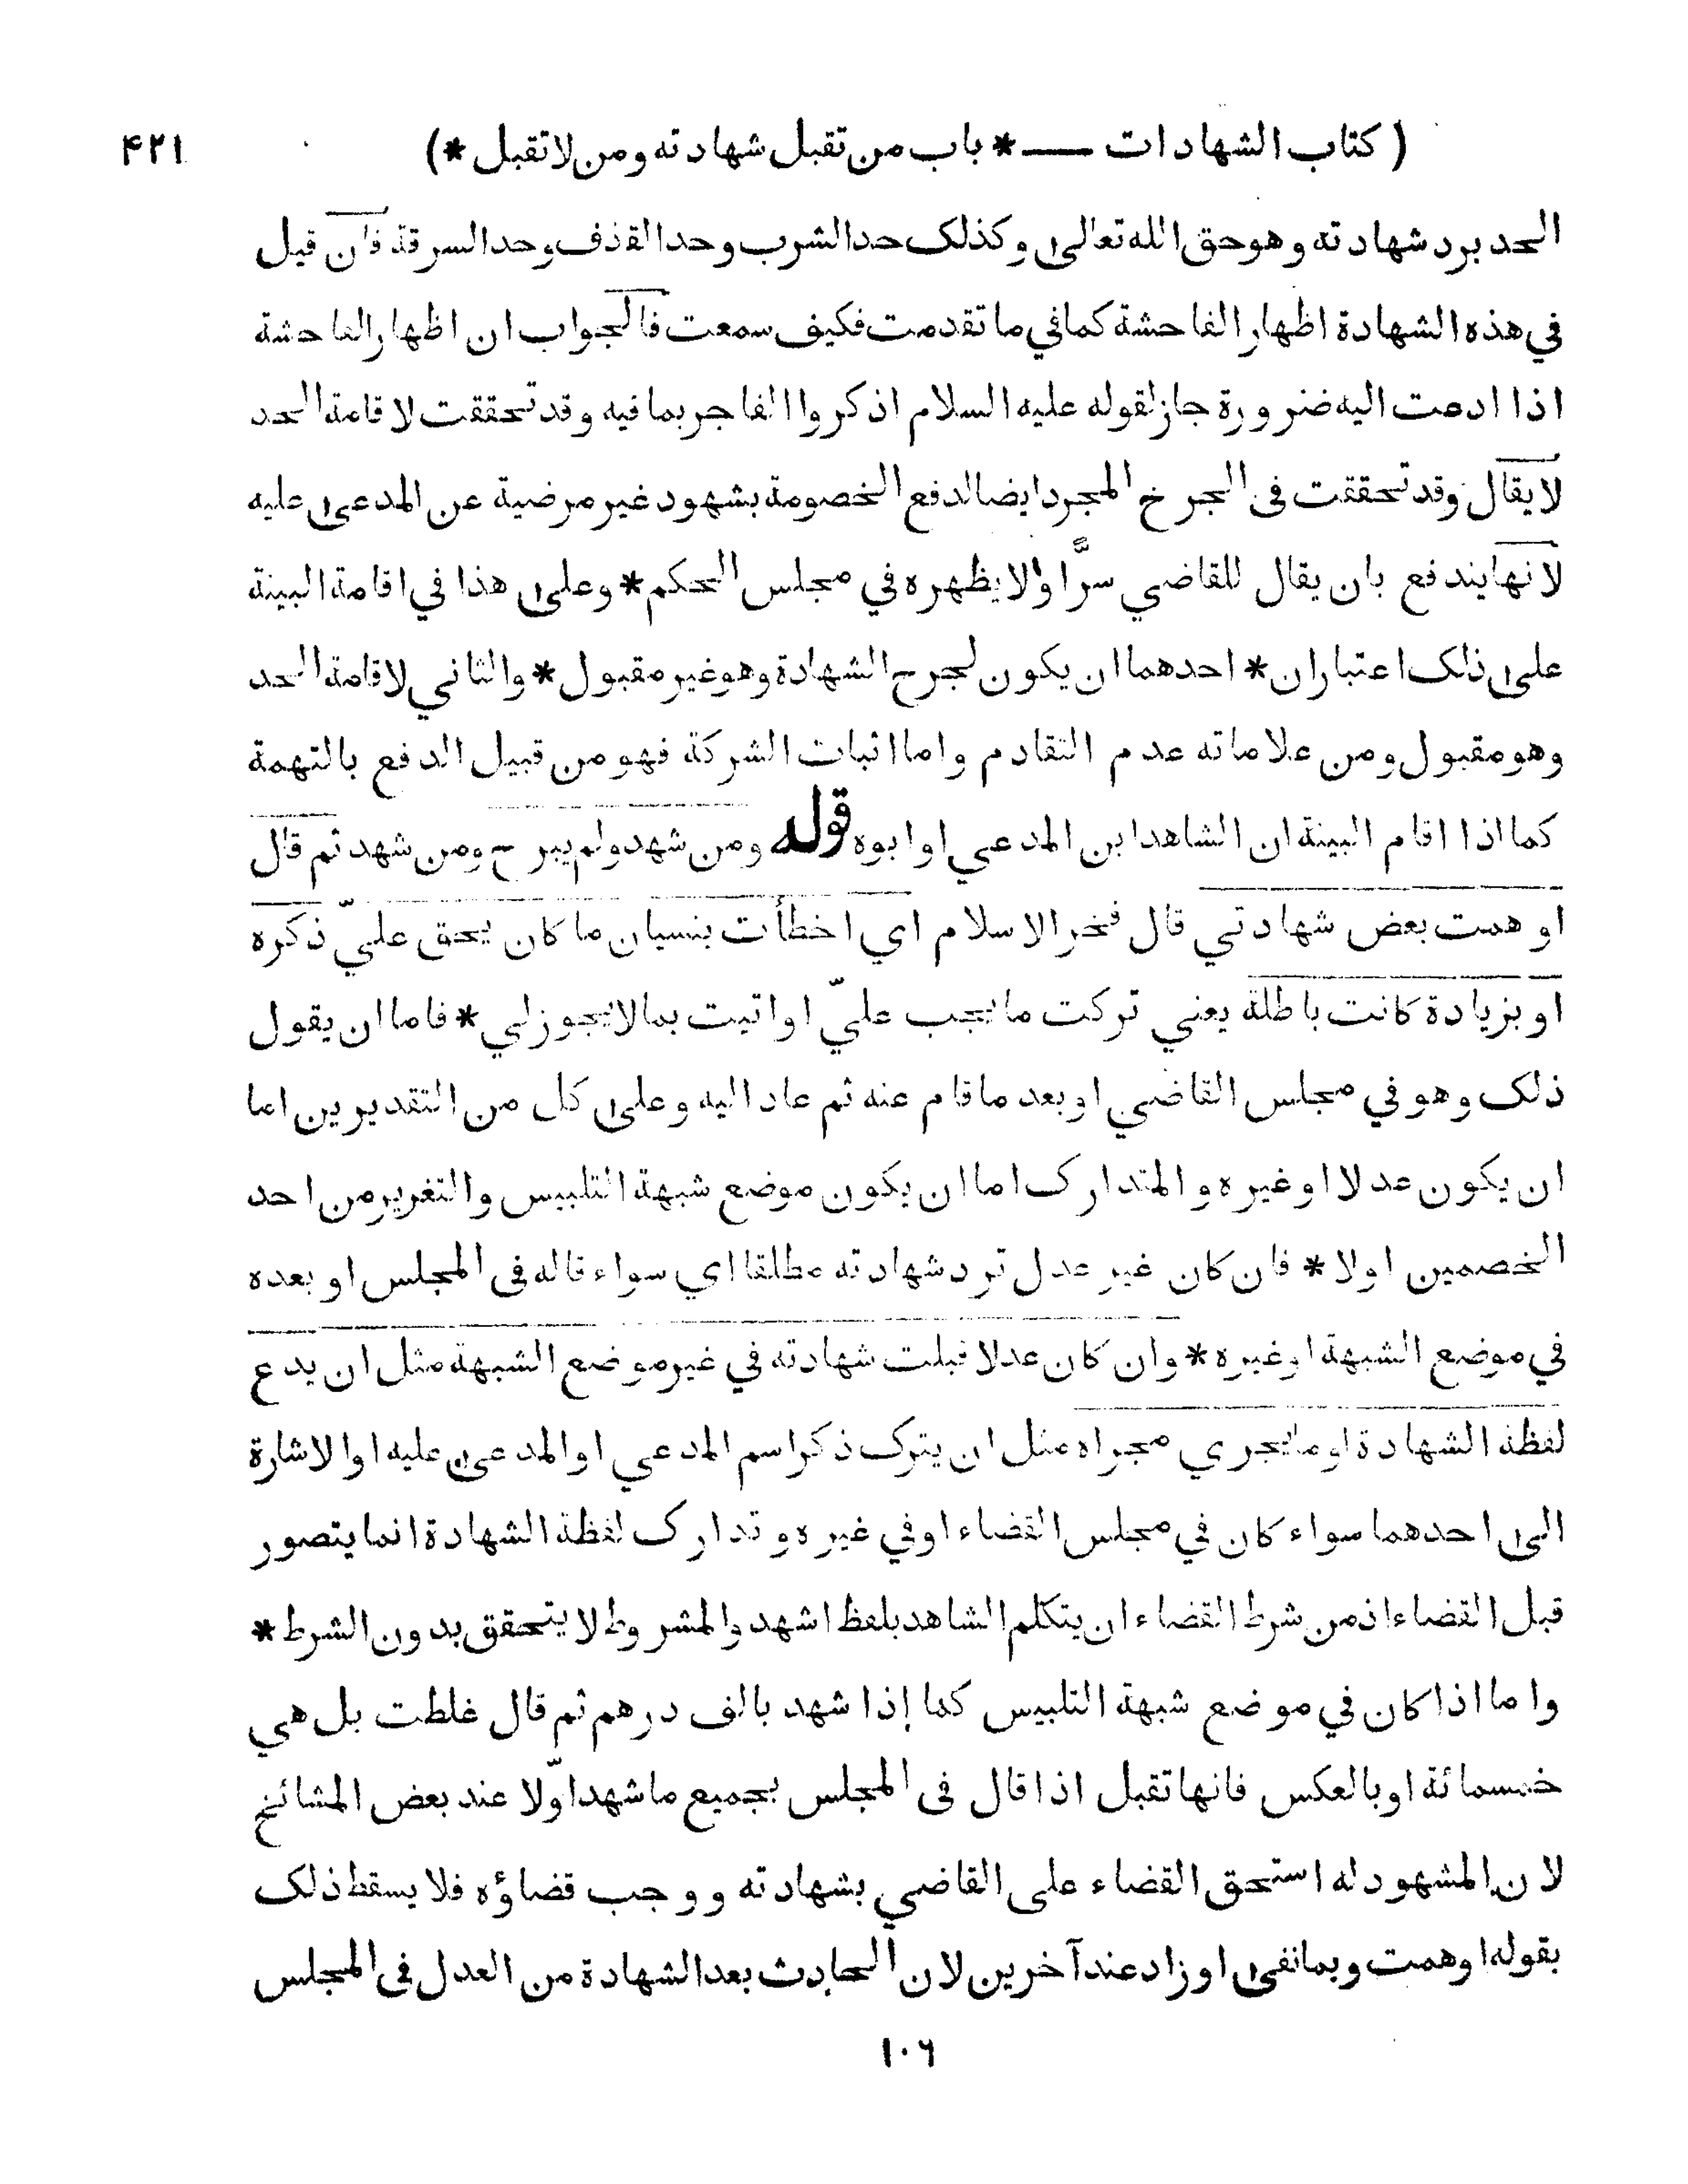 ( كتاب الشهادات — * باب من تقبل شهادته ومن لا تقبل * ) ۴۲۱
الحد برد شهادته وهو حق الله تعالى وكذلك حد الشرب وحد القذف وحد السرقة فان قيل
في هذه الشهادة اظهار الفاحشة كما في ما تقدمت فكيف سمعت فالجواب ان اظهار الفاحشة
اذا ادعت اليه ضرورة جاز لقوله عليه السلام اذكروا الفاجر بما فيه وقد تحققت لاقامة الحد
لا يقال وقد تحققت فى الجرخ المجرد ايضا لدفع الخصومة بشهود غير مرضية عن المدعى عليه
لانها يندفع بان يقال للقاضي سرًّا ولا يظهره في مجلس الحكم * وعلى هذا في اقامة البينة
على ذلك اعتباران * احدهما ان يكون لجرح الشهادة وهو غير مقبول * والثاني لاقامة الحد
وهو مقبول ومن علاماته عدم التقادم واما اثبات الشركة فهو من قبيل الدفع بالتهمة
كما اذا اقام البينة ان الشاهد ابن المدعي او ابوه قوله ومن شهد ولم يبرح ومن شهد ثم قال
او همت بعض شهادتي قال فخر الاسلام اي اخطأت بنسيان ما كان يحق عليّ ذكره
او بزيادة كانت باطلة يعني تركت ما يجب عليّ او اتيت بما لا يجوز لي * فاما ان يقول
ذلك وهو في مجلس القاضي او بعد ما قام عنه ثم عاد اليه وعلى كل من التقديرين اما
ان يكون عدلا او غيره و المتدارك اما ان يكون موضع شبهة التلبيس والتغرير من احد
الخصمين اولا * فان كان غير عدل ترد شهادته مطلقا اي سواء قاله فى المجلس او بعده
في موضع الشبهة او غيره * وان كان عدلا قبلت شهادته في غير موضع الشبهة مثل ان يدع
لفظة الشهادة او ما يجري مجراه مثل ان يترك ذكر اسم المدعي او المدعى عليه او الاشارة
الى احدهما سواء كان في مجلس القضاء او في غيره و تدارك لفظة الشهادة انما يتصور
قبل القضاء اذ من شرط القضاء ان يتكلم الشاهد بلفظ اشهد والمشروط لا يتحقق بدون الشرط *
واما اذا كان في موضع شبهة التلبيس كما إذا شهد بالف درهم ثم قال غلطت بل هي
خمسمائة او بالعكس فانها تقبل اذا قال فى المجلس بجميع ما شهد اوّلا عند بعض المشائخ
لان المشهود له استحق القضاء على القاضي بشهادته ووجب قضاؤه فلا يسقط ذلك
بقوله اوهمت وبما نفى او زاد عند آخرين لان الحادث بعد الشهادة من العدل فى المجلس
۱۰۶